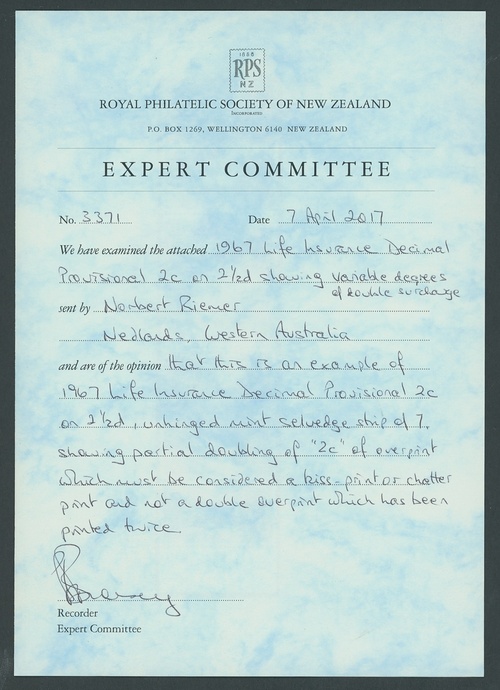 1888
RPS
NZ
ROYAL PHILATELIC SOCIETY OF NEW ZEALAND
INCORPORATED
P.O. BOX 1269, WELLINGTON 6140 NEW ZEALAND
EXPERT COMMITTEE
No. 3371 Date 7 April 2017
We have examined the attached 1967 Life Insurance Decimal
Provisional 2c on 2½d showing variable degrees
of double surcharge
sent by Norbert Riemer
Nedlands, Western Australia
and are of the opinion that this is an example of
1967 Life Insurance Decimal Provisional 2c
on 2½d, unhinged mint selvedge strip of 7,
showing partial doubling of "2c" of overprint
which must be considered a kiss-print or chatter
print and not a double overprint which has been
printed twice.
Recorder
Expert Committee